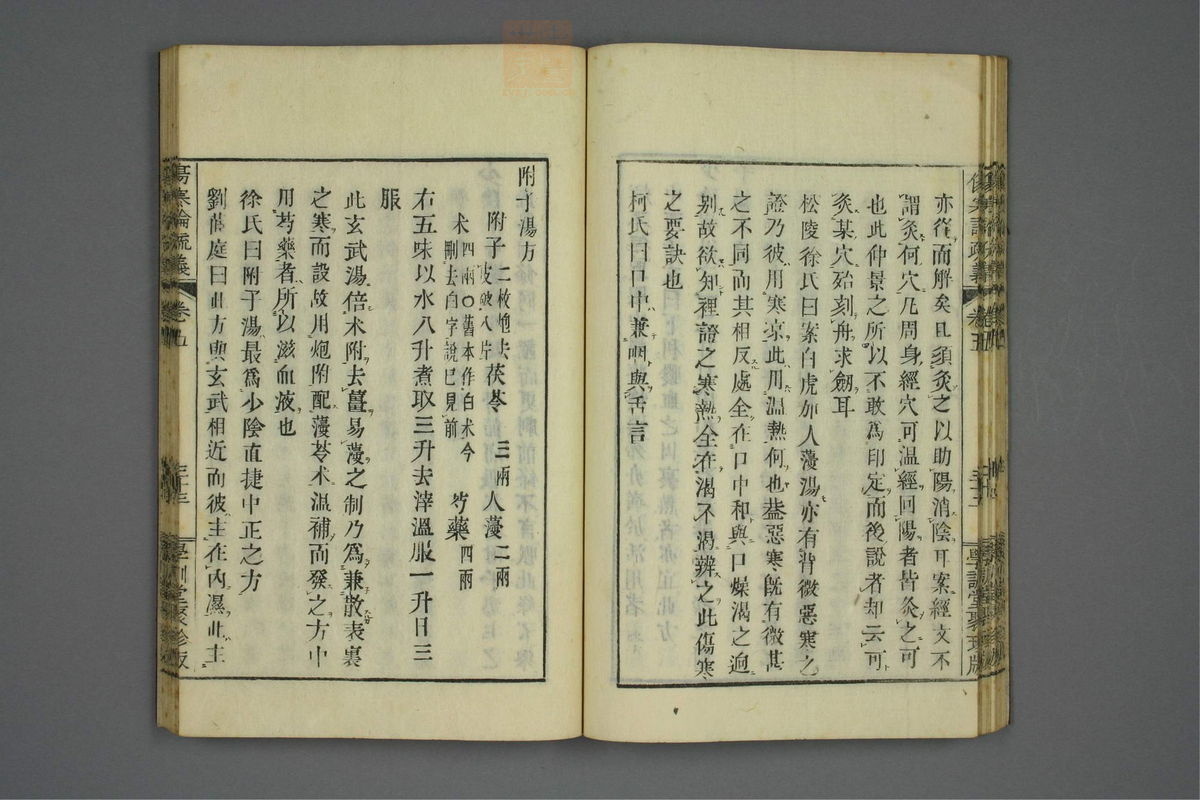 亦從而解矣且須灸之以助陽消陰耳案經文不
謂灸何穴凡周身經穴可温經回陽者皆灸之可
也此仲景之所以不敢為印定而後說者却云可
灸某穴殆刻舟求劒耳
松陵徐氏曰案白虎加人薓湯亦有背微惡寒之
證乃彼用寒凉此用温熱何也葢惡寒既有微甚
之不同而其相反處全在口中和與口燥渴之逈
别故欲知裡證之寒熱全在渴不渴辨之此傷寒
之要訣也
柯氏曰口中兼咽與舌言
傷寒論疏義
卷五
學訓堂聚珍版
附子湯方
附子二枚炮去皮破八片 茯苓三兩 人薓二兩
术四兩○舊本作白术今刪去白字說已見前 芍藥四兩
右五味以水八升煮取三升去滓溫服一升日三
服
此玄武湯倍术附去薑易薓之制乃為兼散表裏
之寒而設故用炮附配薓苓术温補而發之方中
用芍藥者所以滋血液也
徐氏曰附子湯最為少陰直捷中正之方
劉茝庭曰此方與玄武相近而彼主在內濕此主
傷寒論疏義
卷五
三十三
學訓堂聚珍版